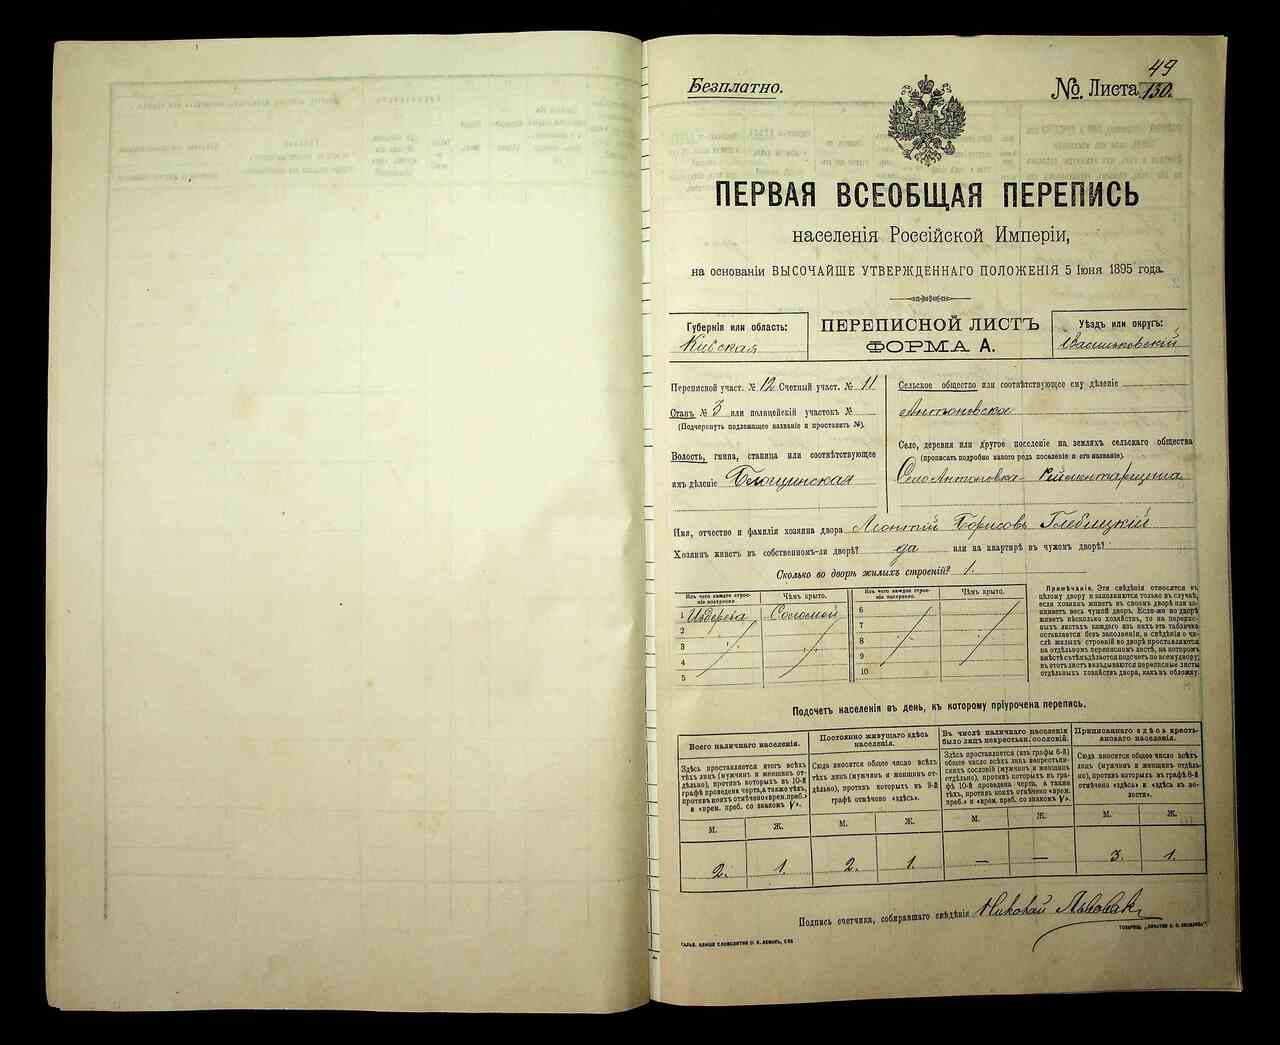 49
Безплатно.
№. Листа 130.
ПЕРВАЯ ВСЕОБЩАЯ ПЕРЕПИСЬ
населенія Россійской Имперіи,
на основаніи ВЫСОЧАЙШЕ УТВЕРЖДЕННАГО ПОЛОЖЕНІЯ 5 Іюня 1895 года.
Губернія или область:
Кіевская
ПЕРЕПИСНОЙ ЛИСТЪ
ФОРМА А.
Уѣздъ или округъ:
Васильковскій
Переписной участ. № 12 Счетный участ. № 11
Станъ № 3 или полицейскій участокъ №
(Подчеркнуть подлежащее названіе и проставить №).
Волость, гмина, станица или соотвѣтствующее
имъ дѣленіе
Сельское общество или соотвѣтствующее ему дѣленіе
Антоновское
Село, деревня или другое поселеніе на земляхъ сельскаго общества
(прописать подробно какого рода поселеніе и его названіе).
Село Антоновка
Имя, отчество и фамилія хозяина двора Леонтій Борисовъ Глебицкій
Хозяинъ живетъ въ собственномъ-ли дворѣ? да или на квартирѣ въ чужомъ дворѣ?
Сколько во дворѣ жилыхъ строеній? 1.
Изъ чего каждое строе-
ніе построено.
Чѣмъ крыто.
Изъ чего каждое строе-
ніе построено.
Чѣмъ крыто.
1 Изъ дерева Соломой 6
2 7
3 8
4 9
5 10
Примѣчаніе. Эти свѣдѣнія относятся къ
цѣлому двору и заполняются только въ случаѣ,
если хозяинъ живетъ въ своемъ дворѣ или за-
нимаетъ весь чужой дворъ. Если-же во дворѣ
живетъ нѣсколько хозяйствъ, то на перепис-
ныхъ листахъ каждаго изъ нихъ эта табличка
оставляется безъ заполненія, а свѣдѣнія о чи-
слѣ жилыхъ строеній во дворѣ проставляются
на отдѣльномъ переписномъ листѣ, на которомъ
вмѣстѣ съ тѣмъ дѣлается подсчетъ по всему двору;
въ этотъ листъ вкладываются переписные листы
отдѣльныхъ хозяйствъ двора, какъ въ обложку.
Подсчетъ населенія въ день, къ которому пріурочена перепись.
Всего наличнаго населенія.
Здѣсь проставляется итогъ всѣхъ
тѣхъ лицъ (мужчинъ и женщинъ от-
дѣльно), противъ которыхъ въ 10-й
графѣ проведена черта, а также тѣхъ,
противъ коихъ отмѣчено «врем. преб.»
и «врем. преб. со знакомъ V».
Постоянно живущаго здѣсь
населенія.
Сюда вносится общее число всѣхъ
тѣхъ лицъ (мужчинъ и женщинъ от-
дѣльно), противъ которыхъ въ 9-й
графѣ отмѣчено «здѣсь».
Въ числѣ наличнаго населенія
было лицъ некрестьян. сословій.
Здѣсь проставляется (изъ графы 6-й)
общее число всѣхъ лицъ некрестьян-
скихъ сословій (мужчинъ и женщинъ
отдѣльно), противъ которыхъ въ гра-
фѣ 10-й проведена черта, а также
тѣхъ, противъ коихъ отмѣчено «врем.
преб.» и «врем. преб. со знакомъ V».
Приписаннаго здѣсь кресть-
янскаго населенія.
Сюда вносится общее число всѣхъ
лицъ (мужчинъ и женщинъ отдѣль-
но), противъ которыхъ въ графѣ 8-й
отмѣчено «здѣсь» и «здѣсь въ во-
лости».
М. Ж. М. Ж. М. Ж. М. Ж.
2. 1. 2. 1. — — 3. 1.
Подпись счетчика, собиравшаго свѣдѣнія Николай